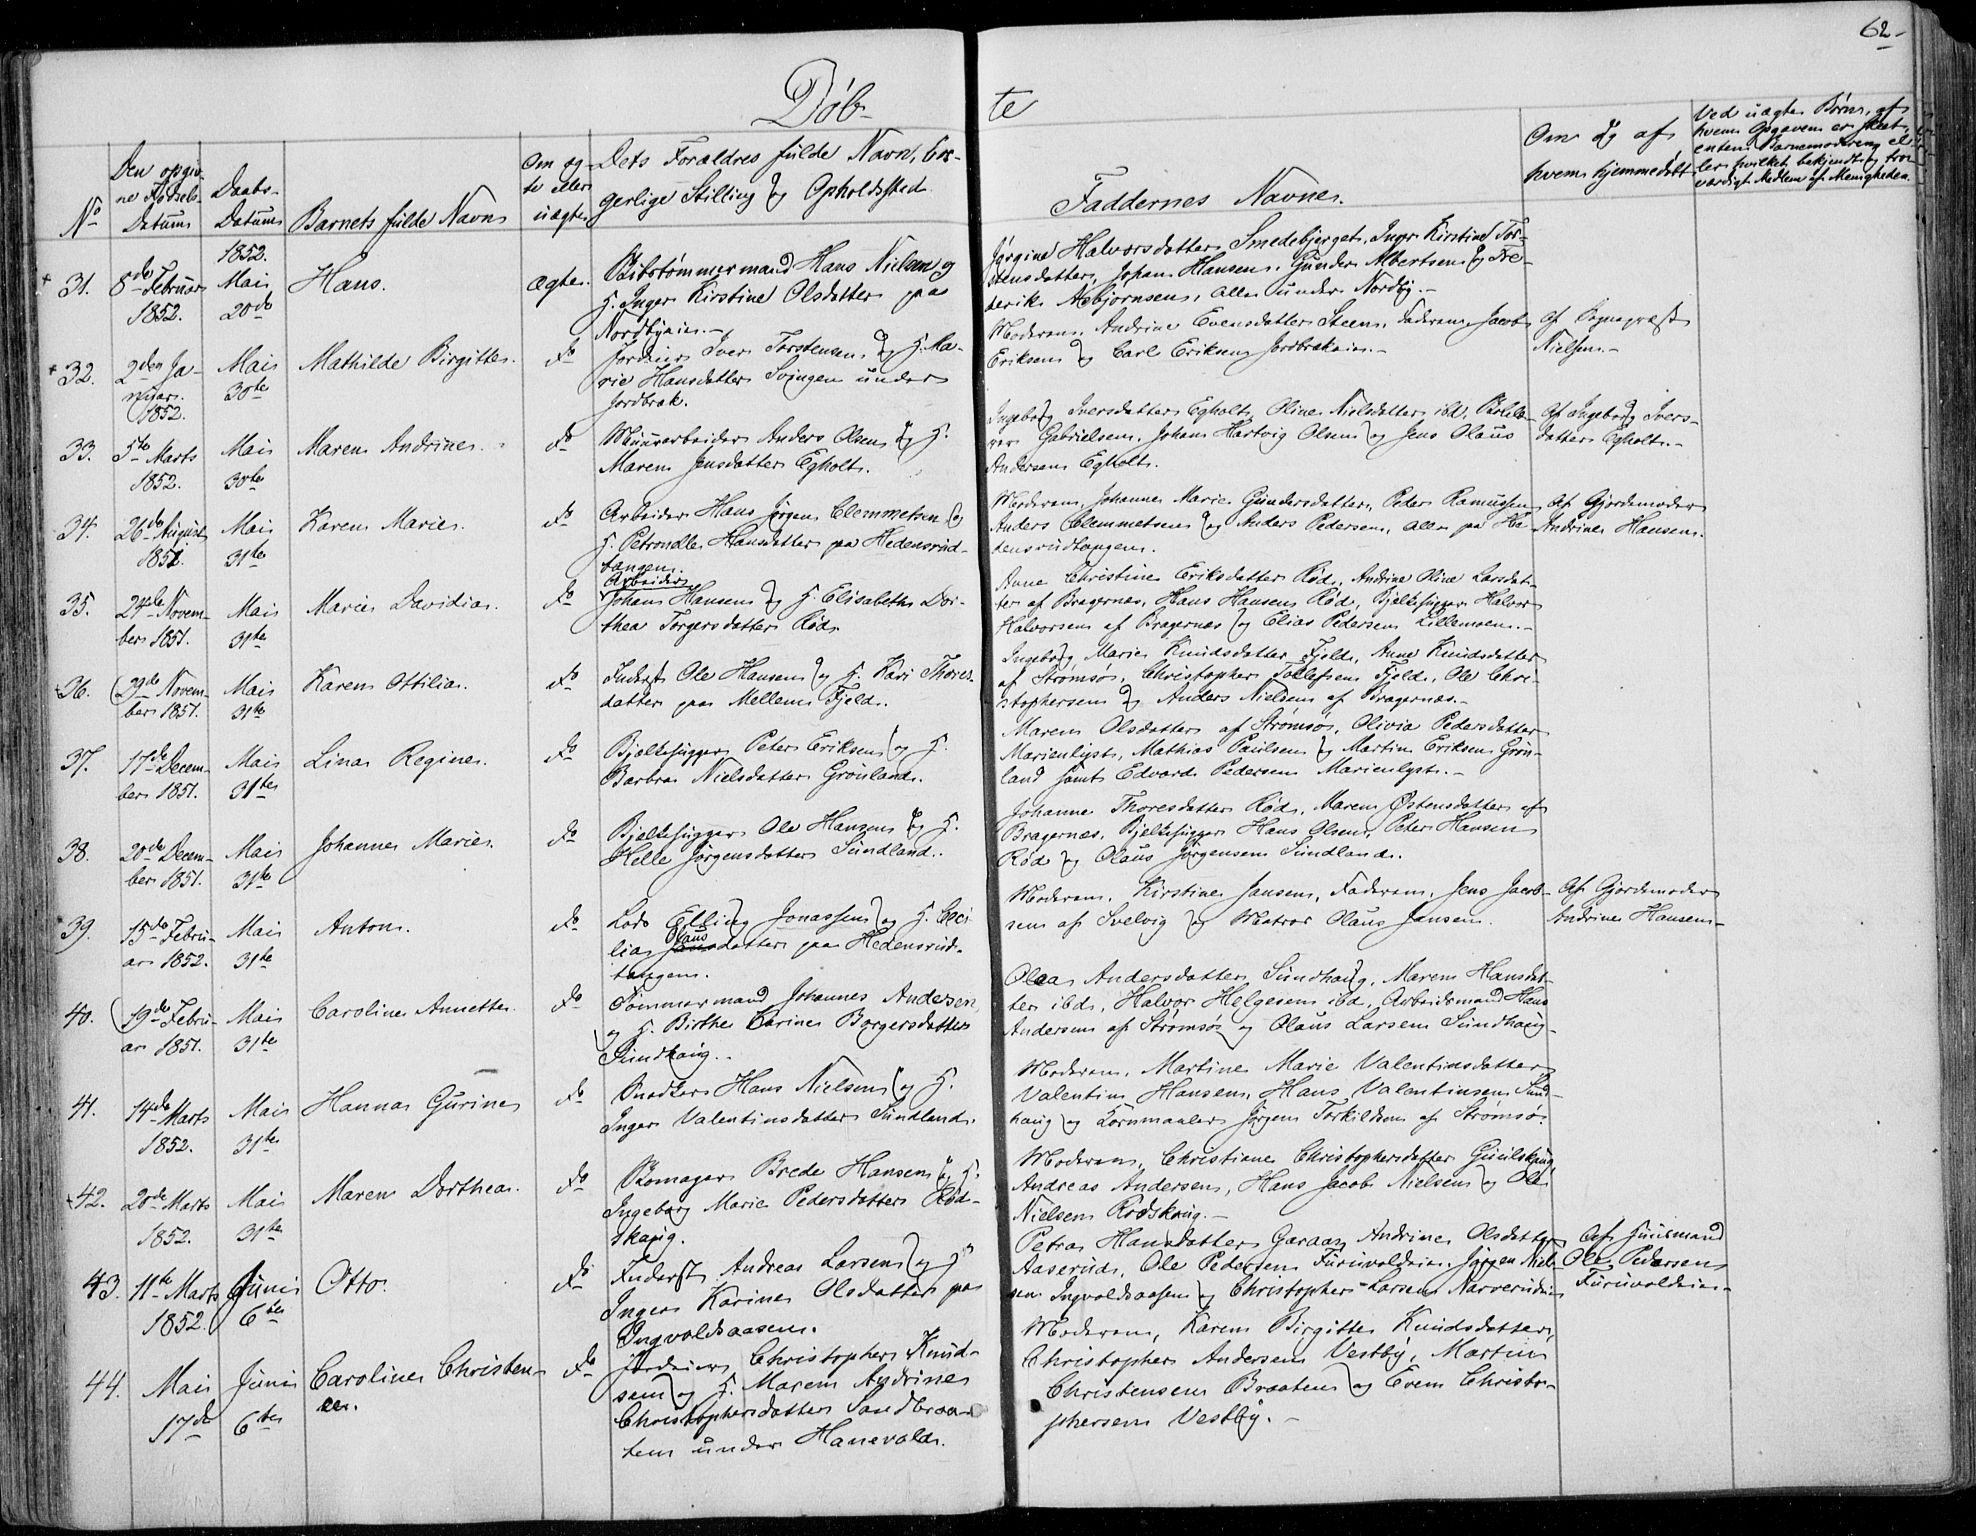 62
Døb-
te
No
Den opgiv-
ne Fødsels-
Datum
Daabs-
Datum
Barnets fulde Navn
Om æg-
te eller
uægte
Dets Forældres fulde Navn, Bor-
gerlige Stilling og Opholdssted.
Faddernes Navne.
Om og af
hvem hjemmedøbt
Ved uægte Børn, af
hvem Opgaven er skeet,
enten Barnemoderen el-
ler hvilket bekjendt og tro-
værdigt Medlem af Menigheden.
31.
8de Februar
1852.
1852.
Mai
20de
Hans.
Ægte.
Skibstømmermand Hans Nielsen og
H. Inger Kirstine Olsdatter paa
Nordbyeie.
Jørgine Halvorsdatter Smedebjerget, Inger Kirstine Tor-
stensdatter, Johan Hansen, Gunder Albertsen og Fre-
derik Asbjørnsen, alle under Nordby.
32.
2den Ja-
nuar.
1852.
Mai
30te
Mathilde Birgitte.
Do
Jordeier Iver Torstensen og H. Ma-
rie Hansdatter Svingen under
Jordbræk.
Moderen, Andrine Evensdatter Steen, Faderen, Jacob
Eriksen og Carl Eriksen Jordbrækeie.
Af Sognepræst
Nielsen.
33.
5te Marts
1852.
Mai
30te
Maren Andrine.
Do
Muurarbeider Anders Olsen og H.
Maren Jensdatter Egholt.
Ingeborg Iversdatter Egholt, Oline Nielsdatter ibd,
Gabrielsen, Johan Hartvig Olsen og Jens Olaus
Andersen Egholt.
Af Ingeborg Ivers-
datter Egholt.
34.
26de August
1851.
Mai
31te
Karen Marie.
Do
Arbeider Hans Jørgen Clemmetsen og
H. Petronelle Hansdatter paa Hedensrud-
tangen.
Moderen, Johanne Marie Gundersdatter, Peder Rasmussen
Anders Clemmetsen og Anders Pedersen, alle paa He-
densrudtangen.
Af Gjordemoder
Andrine Hansen.
35.
24de Novem-
ber 1851.
Mai
31te
Marie Davidia.
Do
Arbeider
Johan Hansen og H. Elisabeth Dor-
thea Torgersdatter Rød.
Anne Christine Eriksdatter Rød, Andrine Oline Larsdat-
ter af Bragernæs, Hans Hansen Rød, Bjelkehugger Halvor
Halvorsen af Bragernæs og Elias Pedersen Lillemoen.
36.
29de Novem-
ber 1851.
Mai
31te
Karen Ottilia.
Do
Inderst Ole Hansen og H. Kari Thores-
datter paa Mellem Fjeld.
Ingeborg Marie Knudsdatter Fjeld, Anne Knudsdatter
af Strømsø, Christopher Tollefsen Fjeld, Ole Chri-
stophersen og Anders Nielsen af Bragernæs.
37.
17de Decem-
ber 1851.
Mai
31te
Lina Regine.
Do
Bjelkehugger Peter Eriksen og H.
Barbra Nielsdatter Grønland.
Maren Olsdatter af Strømsø, Olivia Pedersdatter
Marienlyst, Mathias Paulsen og Martin Eriksen Grøn-
land samt Edvard Pedersen Marienlyst.
38.
20de Decem-
ber 1851.
Mai
31te
Johanne Marie.
Do
Bjelkehugger Ole Hansen og H.
Helle Jørgensdatter Sundland.
Johanne Thoresdatter Rød, Maren Østensdatter af
Bragernæs, Bjelkehugger Hans Olsen, Peter Hansen
Rød og Olaus Jørgensen Sundland.
39.
15de Febru-
ar 1852.
Mai
31te
Anton.
Do
Lods Elling Jonassen og H. Ceci-
lia Olausdatter paa Hedensrud-
tangen.
Moderen, Kirstine Jansen, Faderen, Jens Jacob-
sen af Svelvig og Matros Olaus Jansen.
Af Gjordemoder
Andrine Hansen.
40.
19de Febru-
ar 1851.
Mai
31te
Caroline Annette.
Do
Tømmermand Johannes Andersen
og H. Birthe Karine Borgersdatter
Sundhaug.
Olea Andersdatter Sundhaug, Maren Hansdat-
ter ibd, Halvor Helgesen ibd, Arbeidsmand Hans
Andersen af Strømsø og Olaus Larsen Sundhaug.
41.
14de Marts
1852.
Mai
31te
Hanna Gurine
Do
Snedker Hans Nielsen og H.
Inger Valentinsdatter Sundland.
Moderen, Martine Marie Valentinsdatter
Valentin Hansen, Hans Valentinsen Sund-
haug og Kornmaaler Jørgen Torkildsen af Strømsø.
42.
20de Marts
1852.
Mai
31te
Maren Dorthea.
Do
Skomager Brede Hansen og H.
Ingeborg Marie Pedersdatter Rød-
skoug.
Moderen, Christiane Christophersdatter Guulskoug,
Andreas Andersen, Hans Jacob Nielsen og Ole
Nielsen Rødskoug.
43.
11te Marts
1852.
Juni
6te
Otto.
Do
Inderst Andreas Larsen og H
Inger Karine Olsdatter paa
Ingvoldsaasen.
Petra Hansdatter Garaas, Andrine Olsdatter
Aaserud, Ole Pedersen Furuvoldeie, Jørgen Niel-
sen Ingvoldsaasen og Christopher Larsen Narverudeie
Af Huusmand
Ole Pedersen
Furuvoldeie.
44.
Mai
17de
Juni
6te
Caroline Christen-
ce.
Do
Jordeier Christopher Knud-
sen og H. Maren Andrine
Christophersdatter Sandbraa-
ten under Hanevold.
Moderen, Karen Birgitte Knudsdatter,
Christopher Andersen Vestby, Martin
Christensen Braaten og Even Christo-
phersen Vestby.